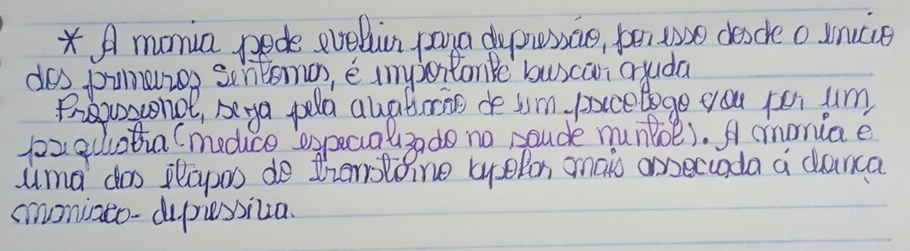 * A mania pode evoluir para depressão, por isso desde o início
dos primeiros sintomas, é importante buscar ajuda
Profissional, seja pela avaliação de um psicologo e/ou por um
psiquiatra (medico especializado na saude mental). A mania é
uma das etapas do transtorno bipolar, mais associada á doença
maniaco-depressiva.